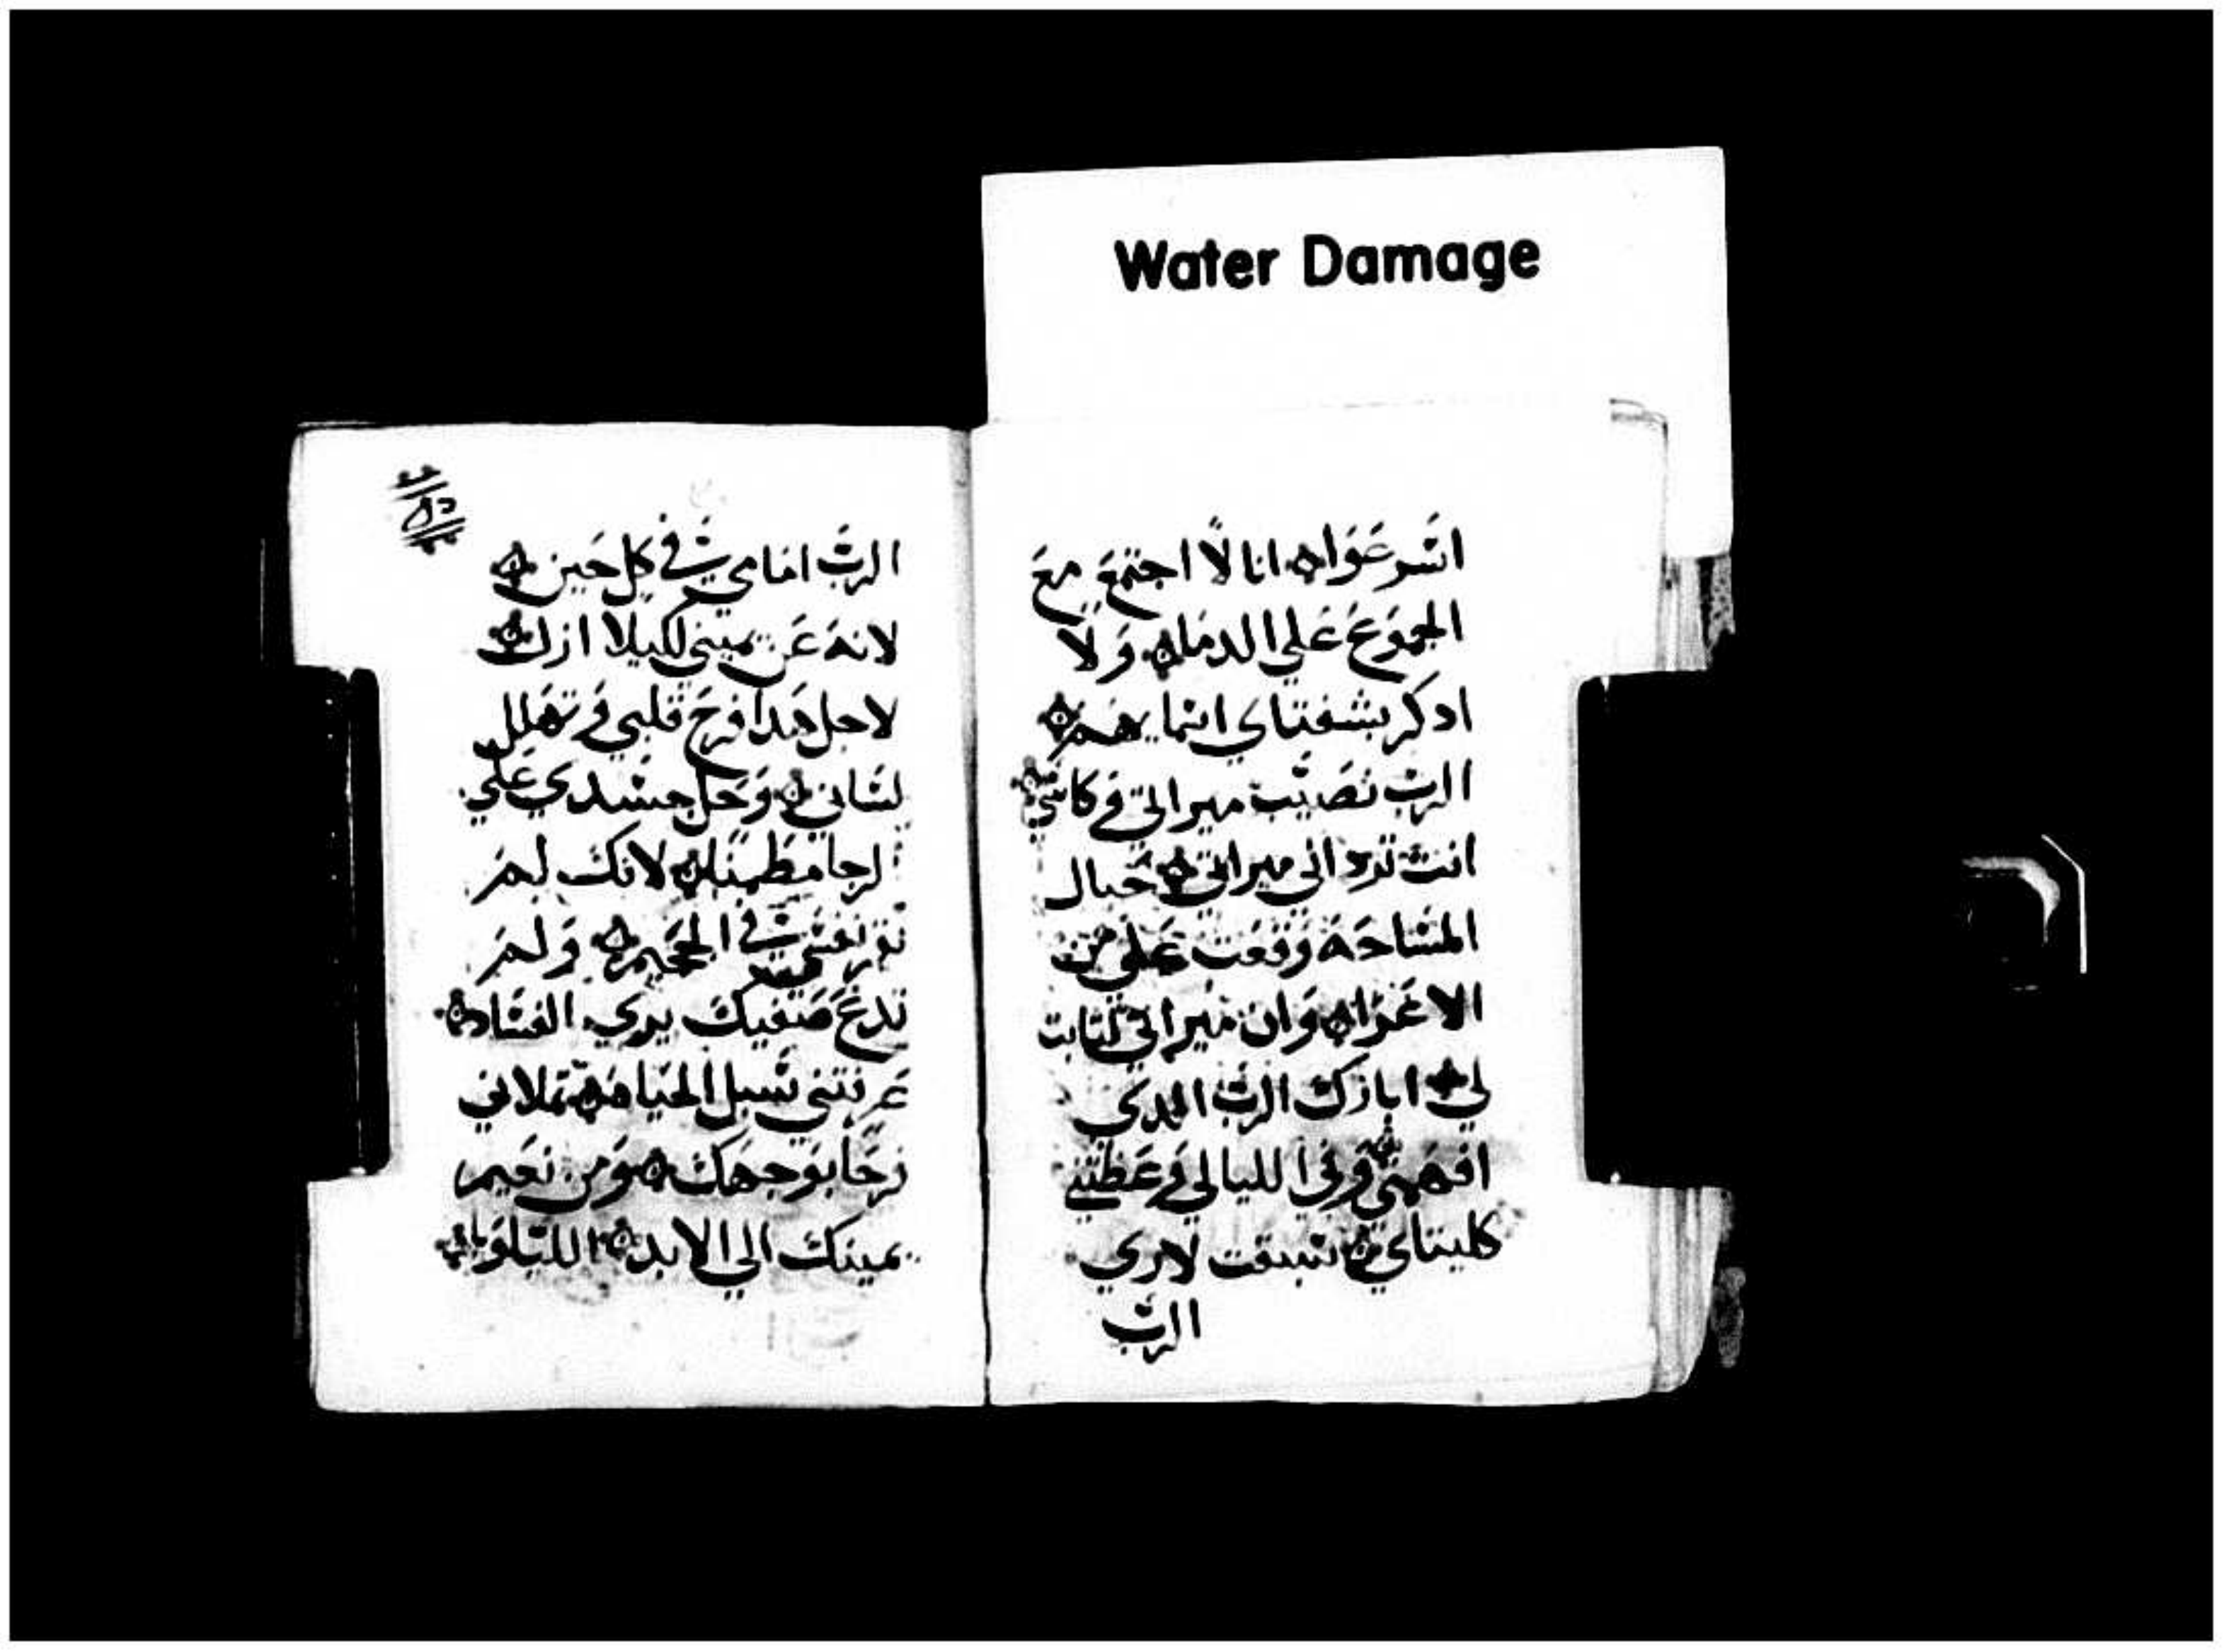 Water Damage
اسرعوا انا لا اجتمع مع
الجموع علي الدما ولا
ادكر بشفتاي اسما يهم
الرب نصيب ميراثي في كاسي
انت ترد الي ميراثي حبال
المساحة وقعت علي من
الاعزا وان ميراثي لثابت
لي ابارك الرب الدي
افهمني وفي الليالي وعظتني
كليتاي سبقت لاري
الرب
الرب امامي في كل حين
لانه عن يميني لكيلا ازل
لاجل هدا فرح قلبي وتهلل
لساني وحل جسدي علي
الرجا مطمينا لانك لم
تترك نفسي في الجحيم ولم
تدع صفيك يري الفساد
عرفتني سبل الحياة تملاني
فرحا بوجهك ومن نعيم
يمينك الي الابد الليلويا